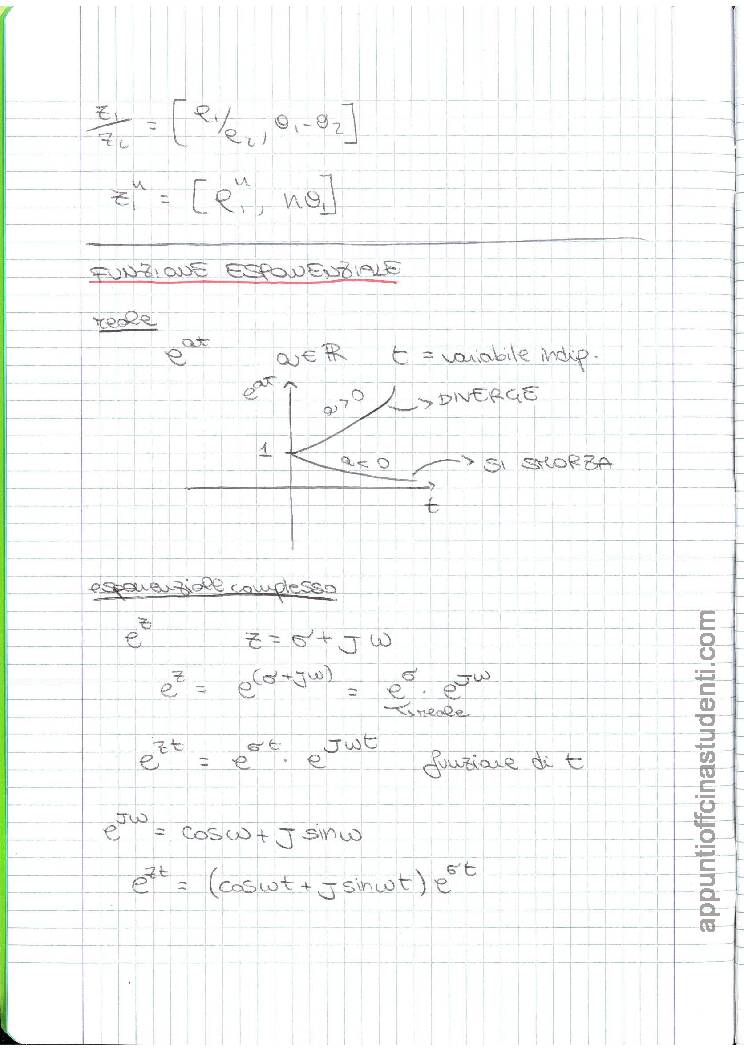 z₁/z₂ = [ρ₁/ρ₂, θ₁-θ₂]
z₁ⁿ = [ρ₁ⁿ, nθ₁]
FUNZIONE ESPONENZIALE
reale
e^{at} a ∈ ℝ t = variabile indip.
e^{at} a>0 → DIVERGE
1 a<0 → SI SMORZA
t
esponenziale complesso
e^z z = σ + jω
e^z = e^{(σ+jω)} = e^σ · e^{jω}
↳reale
e^{zt} = e^{σt} · e^{jωt} funzione di t
e^{jω} = cosω + j sinω
e^{zt} = (cosωt + j sinωt) e^{σt}
appuntioffcinastudenti.com